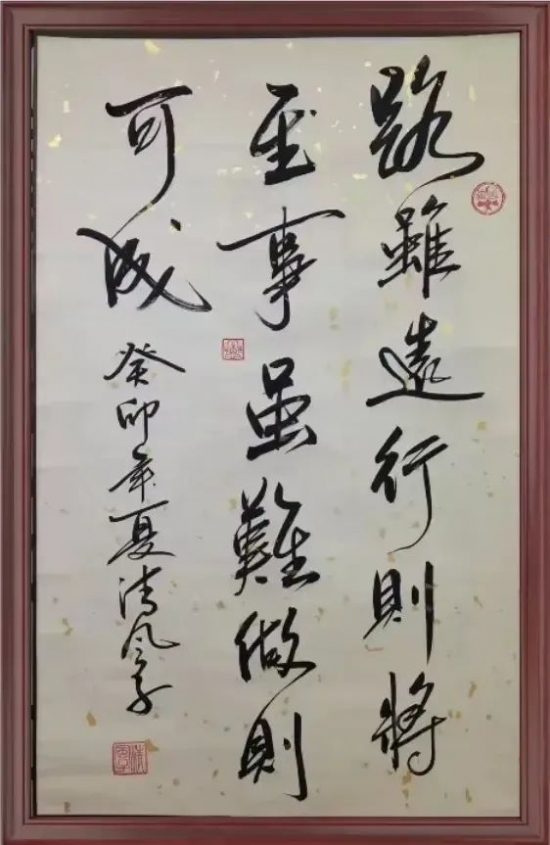 路雖遠行則將
至事虽難做則
可成
癸卯年夏清风子